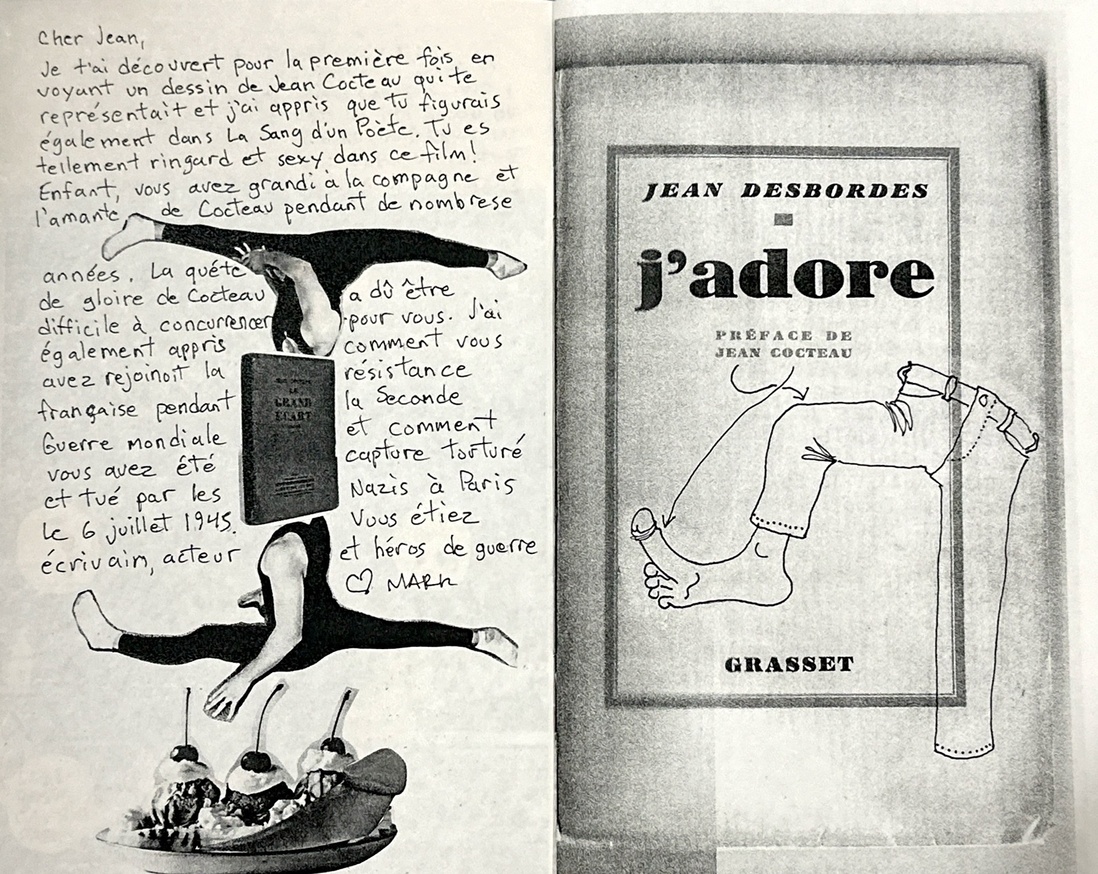 Cher Jean,
Je t'ai découvert pour la première fois en
voyant un dessin de Jean Cocteau qui te
représentait et j'ai appris que tu figurais
également dans La Sang d'un Poète. Tu es
tellement ringard et sexy dans ce film!
Enfant, vous avez grandi à la compagne et
l'amante de Cocteau pendant de nombrese
années. La quête
de gloire de Cocteau a dû être
difficile à concurrencer pour vous. J'ai
également appris comment vous
avez rejoinoit la résistance
française pendant la Seconde
Guerre mondiale et comment
vous avez été capture torturé
et tué par les Nazis à Paris
le 6 juillet 1945. Vous étiez
écrivain, acteur et héros de guerre
♡ MARK
LE
GRAND
ECART
JEAN DESBORDES
j'adore
PRÉFACE DE
JEAN COCTEAU
GRASSET